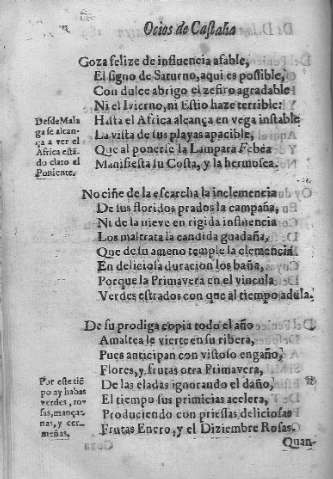 Ocios de Castalia
Goza felize de influencia afable,
El signo de Saturno, aqui es possible,
Con dulce abrigo el zefiro agradable
Ni el Ivierno, ni Estio haze terrible:
Hasta el Africa alcança en vega instable
La vista de sus playas apacible,
Que al ponerse la Lampara Febéa
Manifiesta su Costa, y la hermosea.
Desde Mala
ga se alcan-
ça a ver el
Africa está-
do claro el
Poniente.
No ciñe de la escarcha la inclemencia
De sus floridos prados la campaña,
Ni de la nieve en rigida influencia
Los maltrata la candida guadaña,
Que de su ameno temple la clemencia
En deliciosa duracion los baña,
Porque la Primavera en el vincula
Verdes estrados con que al tiempo adula.
De su prodiga copia todo el año
Amaltea le vierte en su ribera,
Pues anticipan con vistoso engaño,
Flores, y frutas otra Primavera,
De las eladas ignorando el daño,
El tiempo sus primicias acelera,
Produciendo con priessas deliciosas
Frutas Enero, y el Diziembre Rosas.
Por este tiē
po ay habas
verdes, ro-
sas, mança-
nas, y cer-
meñas.
Quan-